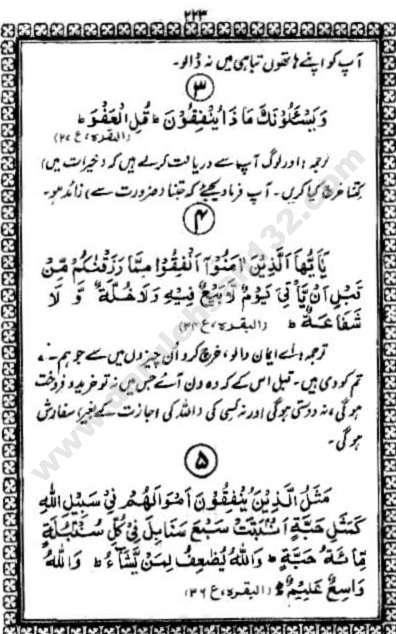 ۲۲۳
آپ کو اپنے ہاتھوں تباہی میں نہ ڈالو۔
۳
وَيَسْئَلُوْنَكَ مَا ذَا يُنْفِقُوْنَ ؕ قُلِ الْعَفْوَ ؕ
(البقرہ، ع ۲۷)
ترجمہ: اور لوگ آپ سے دریافت کرتے ہیں کہ (خیرات میں)
کتنا خرچ کیا کریں۔ آپ فرما دیجئے کہ جتنا (ضرورت سے) زائد ہو۔
۴
يٰاَيُّهَا الَّذِيْنَ اٰمَنُوْٓا اَنْفِقُوْا مِمَّا رَزَقْنٰكُمْ مِّنْ
قَبْلِ اَنْ يَّاْتِىَ يَوْمٌ لَّا بَيْعٌ فِيْهِ وَلَا خُلَّةٌ وَّ لَا
شَفَاعَةٌ ؕ (البقرہ، ع ۳۴)
ترجمہ: اے ایمان والو، خرچ کرو اُن چیزوں میں سے جو ہم نے
تم کو دی ہیں۔ قبل اس کے کہ وہ دن آئے جس میں نہ تو خرید و فروخت
ہوگی، نہ دوستی ہوگی اور نہ کسی کی (اللہ کی اجازت کے بغیر) سفارش
ہوگی۔
۵
مَثَلُ الَّذِيْنَ يُنْفِقُوْنَ اَمْوَالَهُمْ فِىْ سَبِيْلِ اللّٰهِ
كَمَثَلِ حَبَّةٍ اَنْۢبَتَتْ سَبْعَ سَنَابِلَ فِىْ كُلِّ سُنْۢبُلَةٍ
مِّائَةُ حَبَّةٍ ؕ وَاللّٰهُ يُضٰعِفُ لِمَنْ يَّشَآءُ ؕ وَاللّٰهُ
وَاسِعٌ عَلِيْمٌ (البقرہ، ع ۳۶)